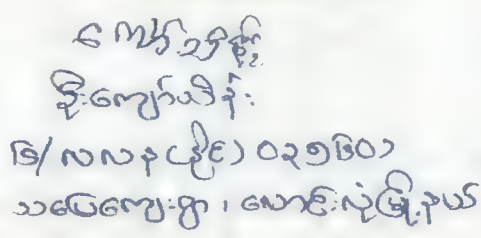 ကော်သိန်း
ဦးကျော်သိန်း
၆/လလန(နိုင်)၀၃၅၆၀၁
သပြေကျေးရွာ၊ လောင်းလုံမြို့နယ်